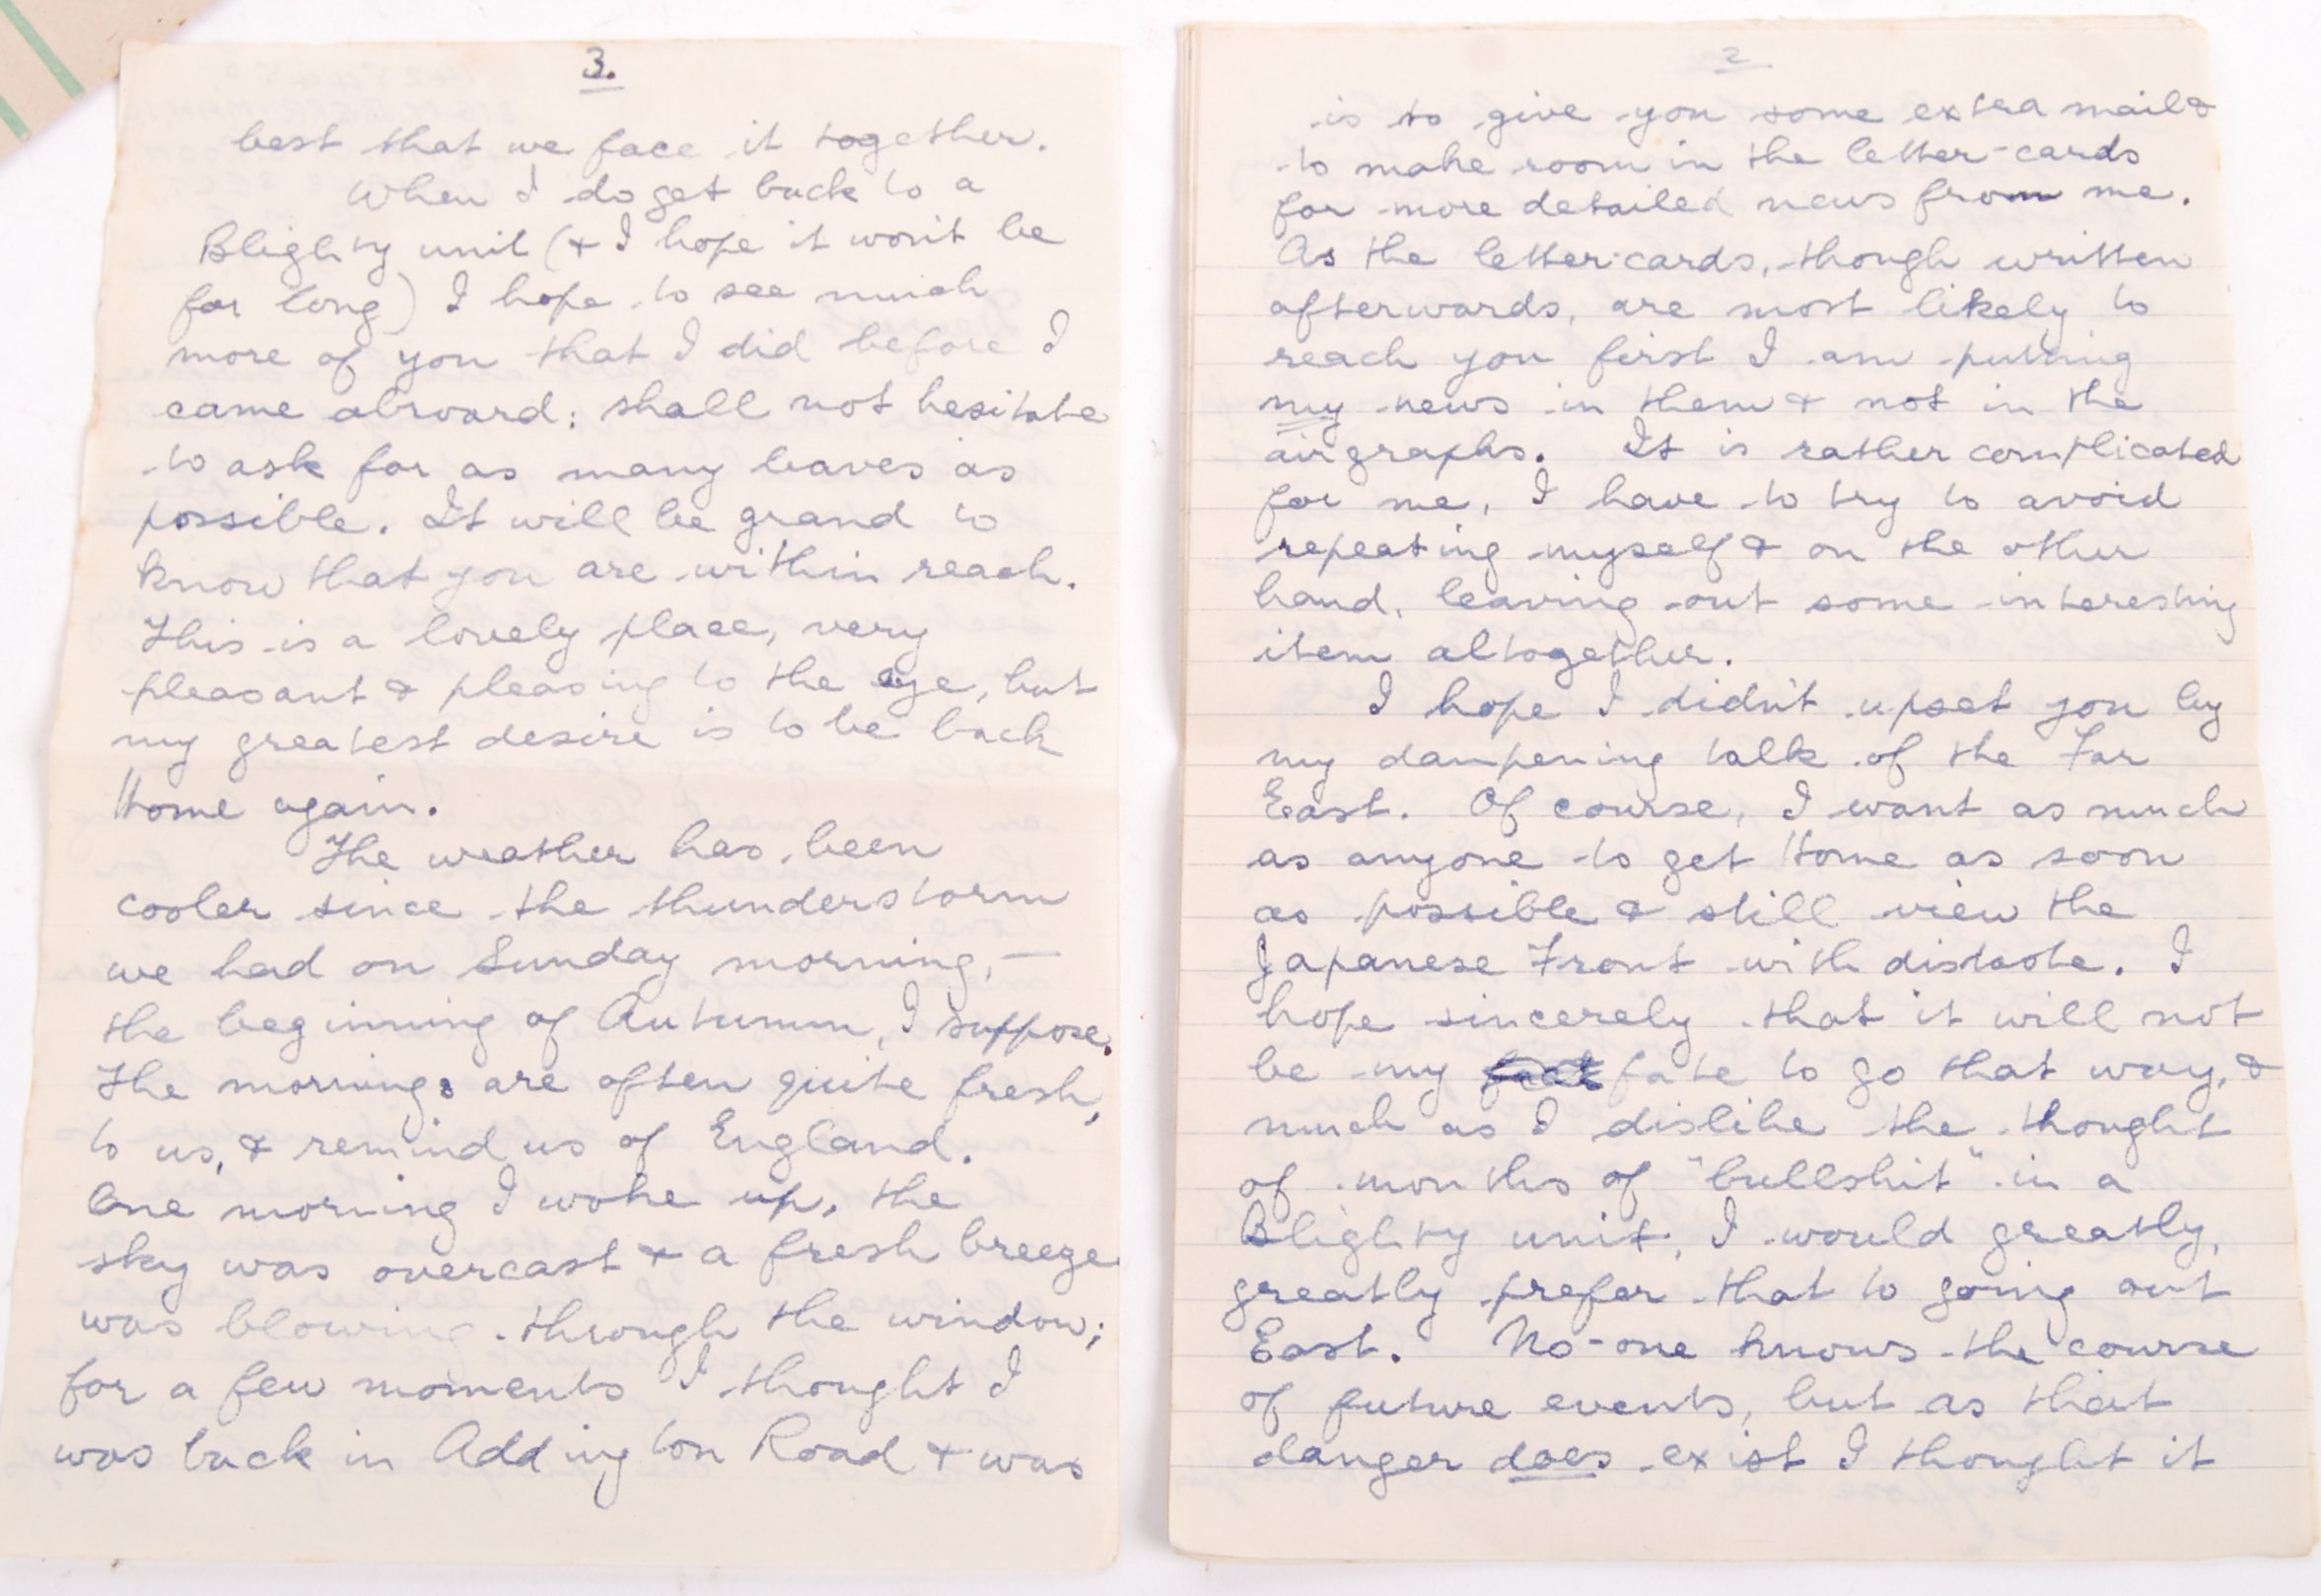 3.
best that we face it together.
When I do get back to a
Blighty unit (& I hope it won't be
for long) I hope to see much
more of you that I did before I
came abroard; shall not hesitate
to ask for as many leaves as
possible. It will be grand to
know that you are within reach.
This is a lovely place, very
pleasant & pleasing to the eye, but
my greatest desire is to be back
Home again.
The weather has been
cooler since the thunderstorm
we had on Sunday morning, —
the beginning of Autumn, I suppose.
The mornings are often quite fresh,
to us, & remind us of England.
One morning I woke up, the
sky was overcast & a fresh breeze
was blowing through the window;
for a few moments I thought I
was back in Addington Road & was
2
is to give you some extra mail &
to make room in the letter-cards
for more detailed news from me.
As the letter-cards, though written
afterwards, are most likely to
reach you first I am putting
my news in them & not in the
airgraphs. It is rather complicated
for me, I have to try to avoid
repeating myself & on the other
hand, leaving out some interesting
item altogether.
I hope I didn't upset you by
my dampening talk of the Far
East. Of course, I want as much
as anyone to get Home as soon
as possible & still view the
Japanese Front with distaste. I
hope sincerely that it will not
be my fate to go that way, &
much as I dislike the thought
of months of "bullshit" in a
Blighty unit, I would greatly,
greatly prefer that to going out
East. No-one knows the course
of future events, but as that
danger does exist I thought it